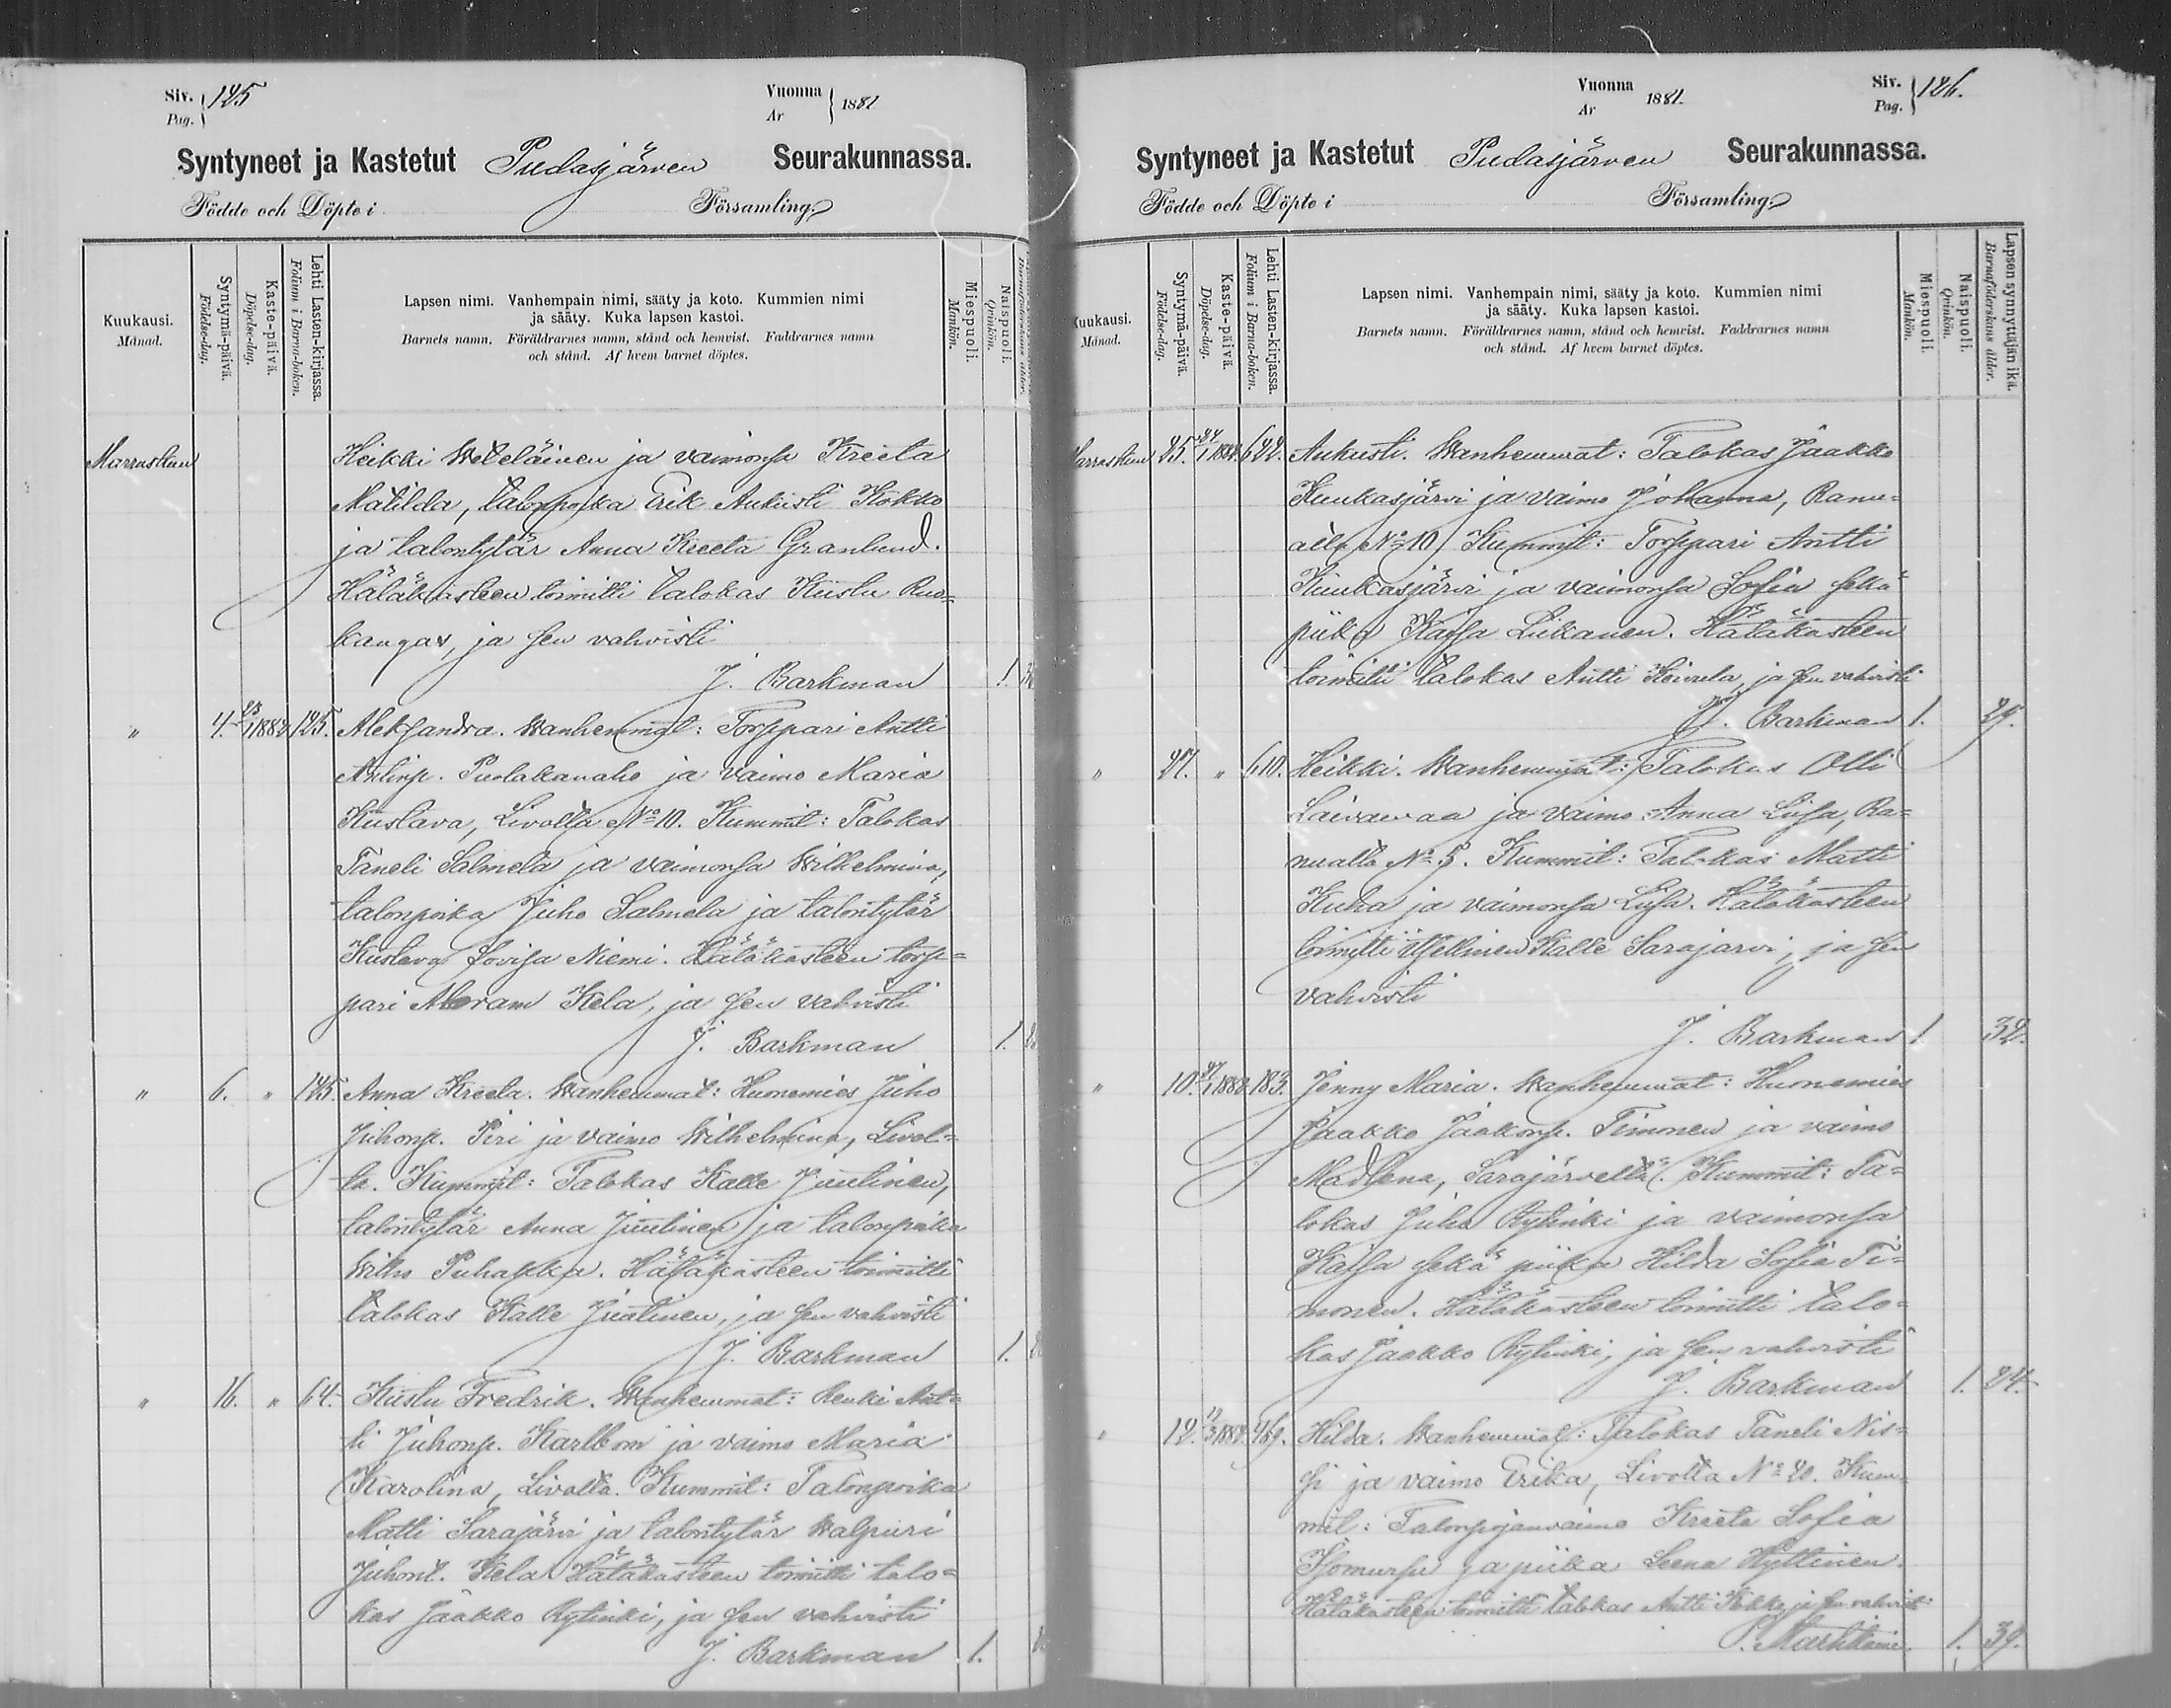 Siv. 125
Pag.
Vuonna 1881
Ar
Syntyneet ja Kastetut Pudasjärven Seurakunnassa.
Födde och Döpte i Församling
Kuukausi.
Månad.
Syntymä-päivä.
Födelse-dag.
Kaste-päivä.
Döpelse-dag.
Lehti Lasten-kirjassa.
Folium i Barna-boken.
Lapsen nimi. Vanhempain nimi, sääty ja koto. Kummien nimi
ja sääty. Kuka lapsen kastoi.
Barnets namn. Föräldrarnes namn, stånd och hemvist. Faddrarnes namn
och stånd. Af hvem barnet döptes.
Miespuoli.
Mankön.
Naispuoli.
Qvinkön.
Marraskuu Heikki Weteläinen ja vaimonsa Kreeta
Matilda, talonpoika Erik Aukusti Kokko
ja talontytär Anna Kreeta Granlund.
Hätäkasteen toimitti talokas Kustu Ruo=
kangas, ja sen vahvisti
J. Barkman 1.
" 4. 23/1 1882 125. Aleksandra. Wanhemmat: Torppari Antti
Antinp. Puolakanaho ja vaimo Maria
Kustava, Livolta No 10. Kummit: Talokas
Taneli Salmela ja vaimonsa Wilhelmina,
talonpoika Juho Salmela ja talontytär
Kustava Lovisa Niemi. Hätäkasteen torp=
pari Abram Kela, ja sen vahvisti
J. Barkman 1.
" 6. " 145. Anna Kreeta. Wanhemmat: Huonemies Juho
Juhonp. Piri ja vaimo Wilhelmina, Livol=
ta. Kummit: Talokas Kalle Juutinen,
talontytär Anna Juutinen ja talonpoika
Wilho Puhakka. Hätäkasteen toimitti
talokas Kalle Juutinen, ja sen vahvisti
J. Barkman 1.
" 16. " 64. Kustu Fredrik. Wanhemmat: Renki Ant=
ti Juhonp. Karlbom ja vaimo Maria
Karolina, Livolta. Kummit: Talonpoika
Matti Sarajärvi ja talontytär Walpuri
Juhont. Kela. Hätäkasteen toimitti talo=
kas Jaakko Rytinki, ja sen vahvisti
J. Barkman 1.
Vuonna 1881.
Ar
Siv. 126.
Pag.
Syntyneet ja Kastetut Pudasjärven Seurakunnassa.
Födde och Döpte i Församling
Kuukausi.
Månad.
Syntymä-päivä.
Födelse-dag.
Kaste-päivä.
Döpelse-dag.
Lehti Lasten-kirjassa.
Folium i Barna-boken.
Lapsen nimi. Vanhempain nimi, sääty ja koto. Kummien nimi
ja sääty. Kuka lapsen kastoi.
Barnets namn. Föräldrarnes namn, stånd och hemvist. Faddrarnes namn
och stånd. Af hvem barnet döptes.
Miespuoli.
Mankön.
Naispuoli.
Qvinkön.
Lapsen synnyttäjän ikä.
Barnaföderskans ålder.
Marraskuu 25. 24/1 1882. 622. Aukusti. Wanhemmat: Talokas Jaakko
Kuukasjärvi ja vaimo Johanna, Ranu=
alta No 10. Kummit: Torppari Antti
Kuukasjärvi ja vaimonsa Sofia sekä
piika Kaisa Liikanen. Hätäkasteen
toimitti talokas Antti Koivula, ja sen vahvisti
J. Barkman 1. 29.
" 27. " 610. Heikki. Wanhemmat: Talokas Olli
Laivavaa ja vaimo Anna Liisa, Ra=
nualta No 5. Kummit: Talokas Matti
Kuha ja vaimonsa Liisa. Hätäkasteen
toimitti itsellinen Kalle Sarajärvi, ja sen
vahvisti
J. Barkman 1 32.
" 10. 27/1 1882 183. Jenny Maria. Wanhemmat: Huonemies
Jaakko Jaakonp. Timonen ja vaimo
Madlena, Sarajärveltä. Kummit: Ta=
lokas Juho Rytinki ja vaimonsa
Kaisa sekä piika Hilda Sofia Ti=
monen. Hätäkasteen toimitti talo=
kas Jaakko Rytinki, ja sen vahvisti
J. Barkman 1. 24.
" 12. 12/3 1882. 469. Hilda. Wanhemmat: Talokas Taneli Nis=
si ja vaimo Erika, Livolta No 20. Kum=
mit: Talonpojanvaimo Kreeta Sofia
Isomursu ja piika Leena Hyttinen.
Hätäkasteen toimitti talokas Antti Kokko, ja sen vahvisti
1. 39.